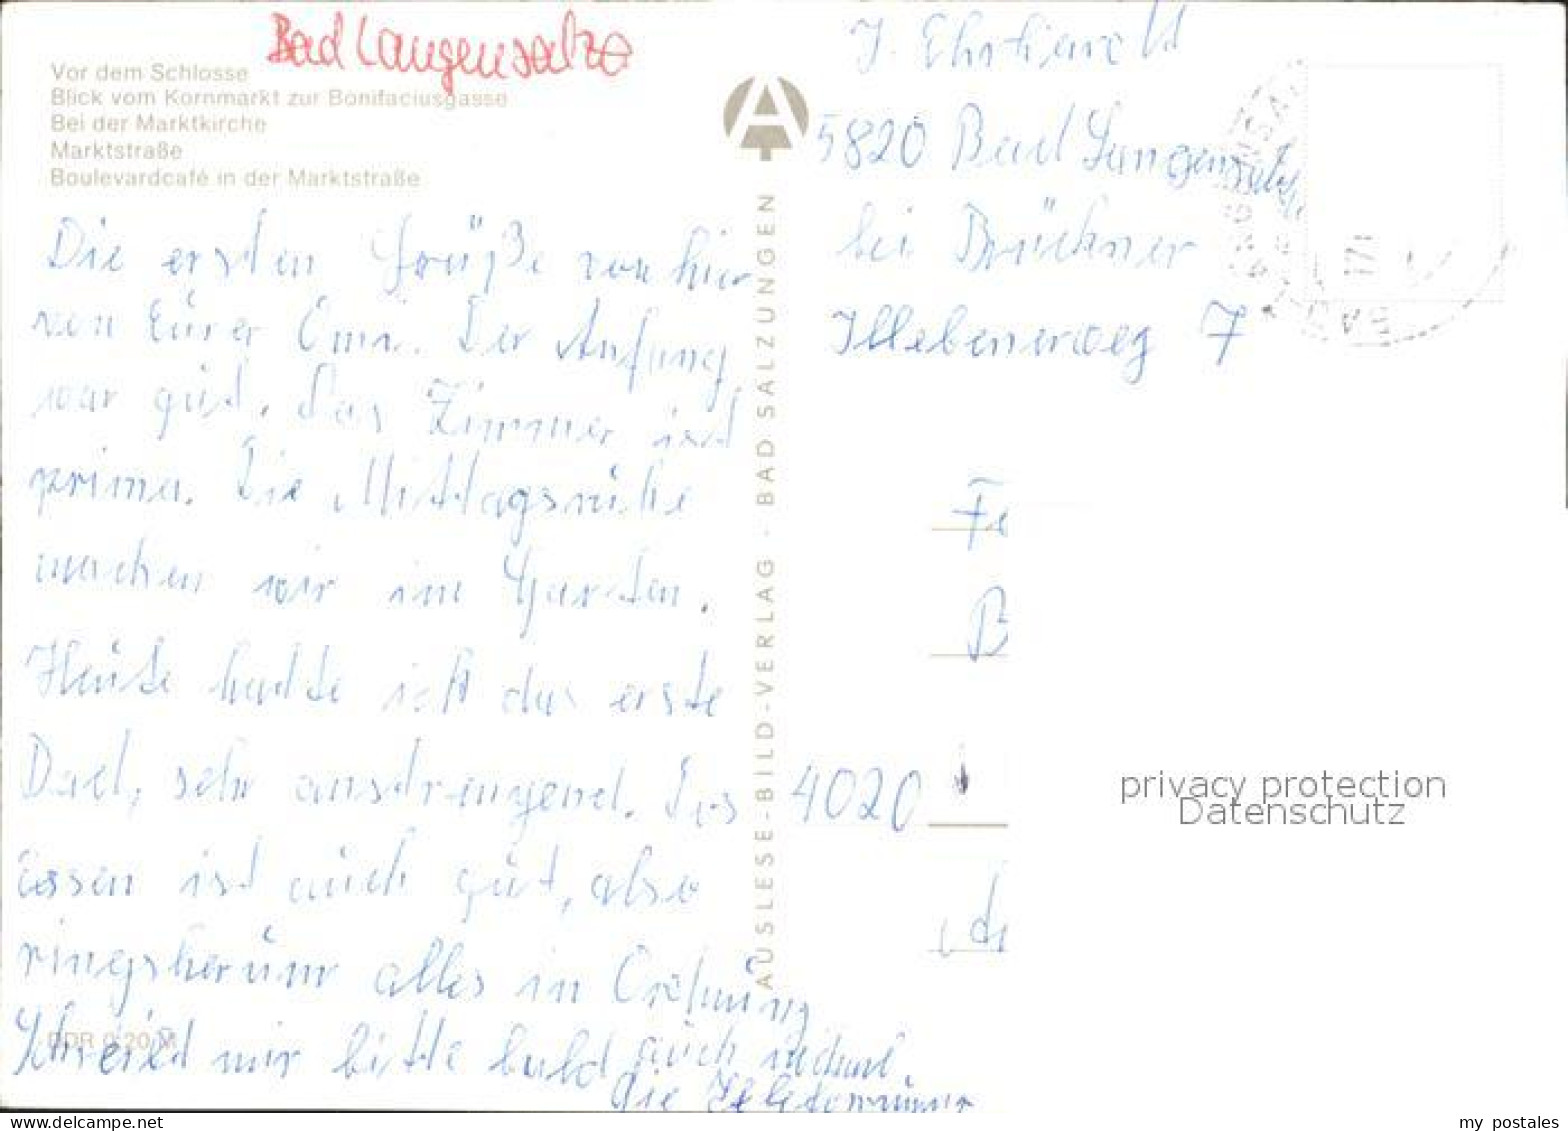 Bad Langensalza
Vor dem Schlosse
Blick vom Kornmarkt zur Bonifaciusgasse
Bei der Marktkirche
Marktstraße
Boulevardcafé in der Marktstraße
Die ersten Grüße von hier
von Eurer Omi. Der Anfang
war gut, das Zimmer ist
prima. Die Mittagsruhe
machen wir im Garten.
Heute hatte ich das erste
Bad, sehr anstrengend. Das
Essen ist auch gut, also
ringsherum alles in Ordnung
Schreibt mir bitte bald auch
die Telefonnummer
DDR 0,20 M
AUSLESE-BILD-VERLAG · BAD SALZUNGEN
J.
5820 Bad Langensalza
bei Brückner
Illebenerweg 7
Fa
B
4020
privacy protection
Datenschutz
my postales